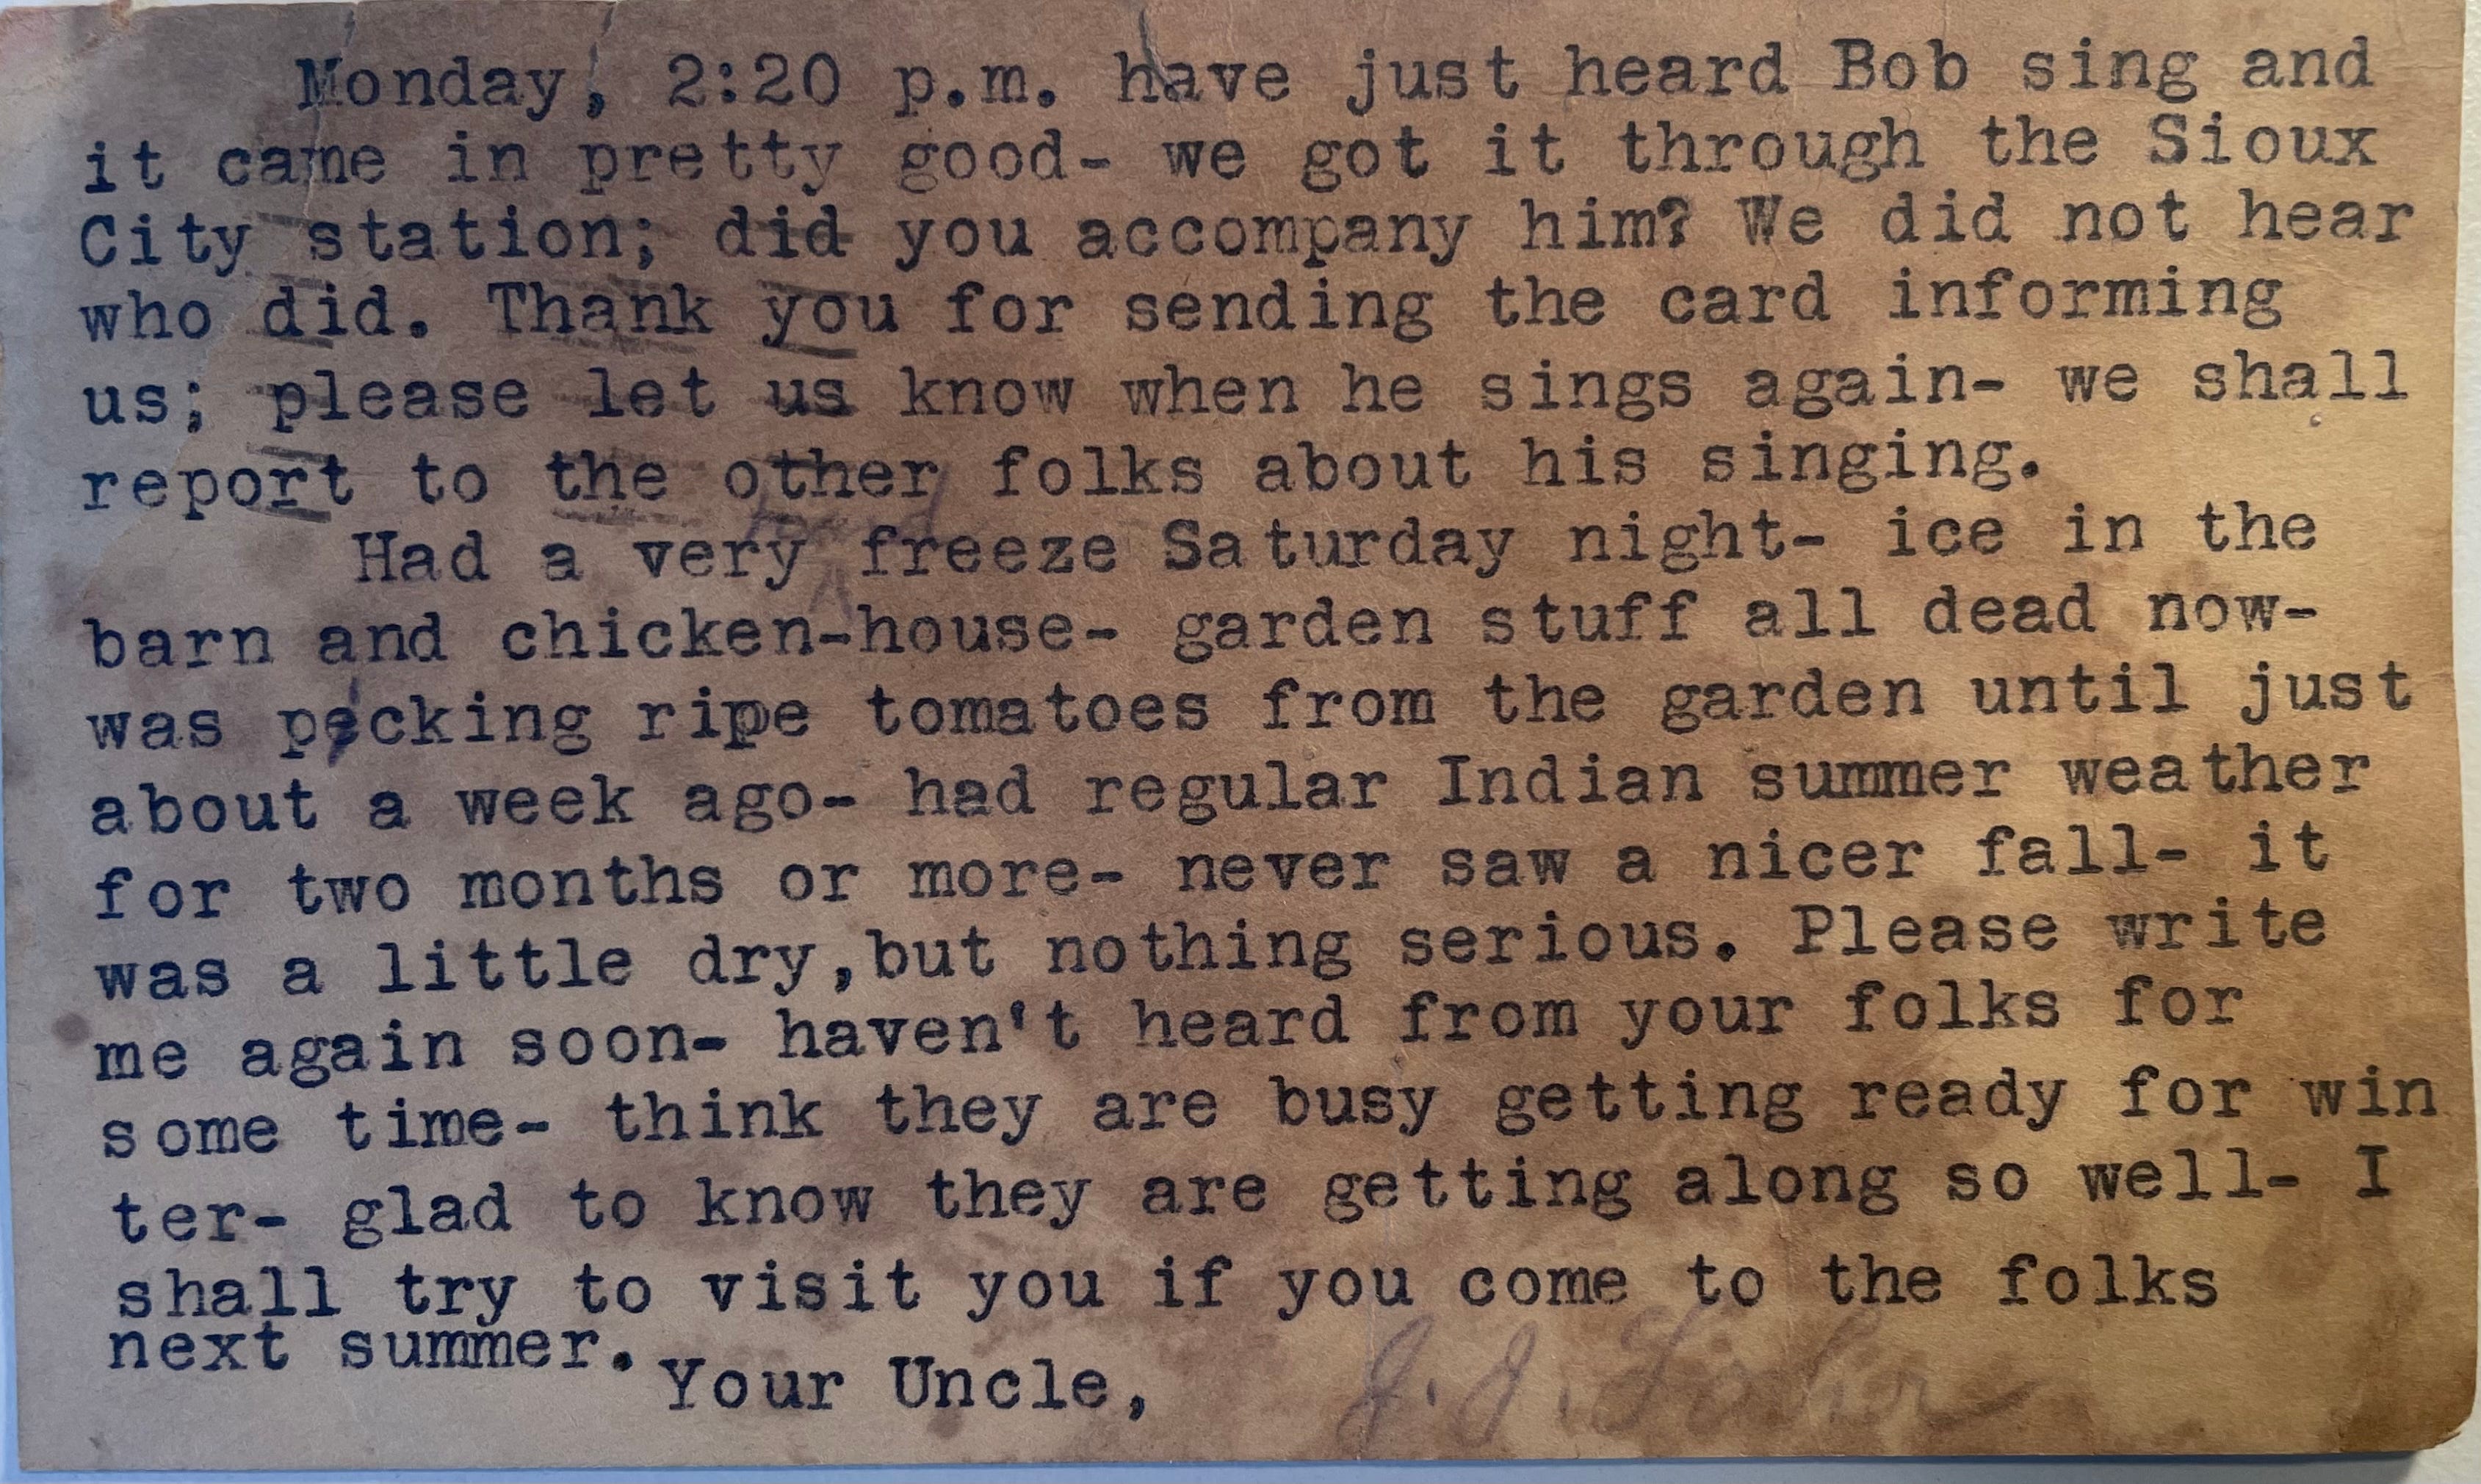 Monday, 2:20 p.m. have just heard Bob sing and
it came in pretty good- we got it through the Sioux
City station; did you accompany him? We did not hear
who did. Thank you for sending the card informing
us; please let us know when he sings again- we shall
report to the other folks about his singing.
Had a very hard freeze Saturday night- ice in the
barn and chicken-house- garden stuff all dead now-
was picking ripe tomatoes from the garden until just
about a week ago- had regular Indian summer weather
for two months or more- never saw a nicer fall- it
was a little dry,but nothing serious. Please write
me again soon- haven't heard from your folks for
some time- think they are busy getting ready for win
ter- glad to know they are getting along so well- I
shall try to visit you if you come to the folks
next summer.
Your Uncle, J. J.